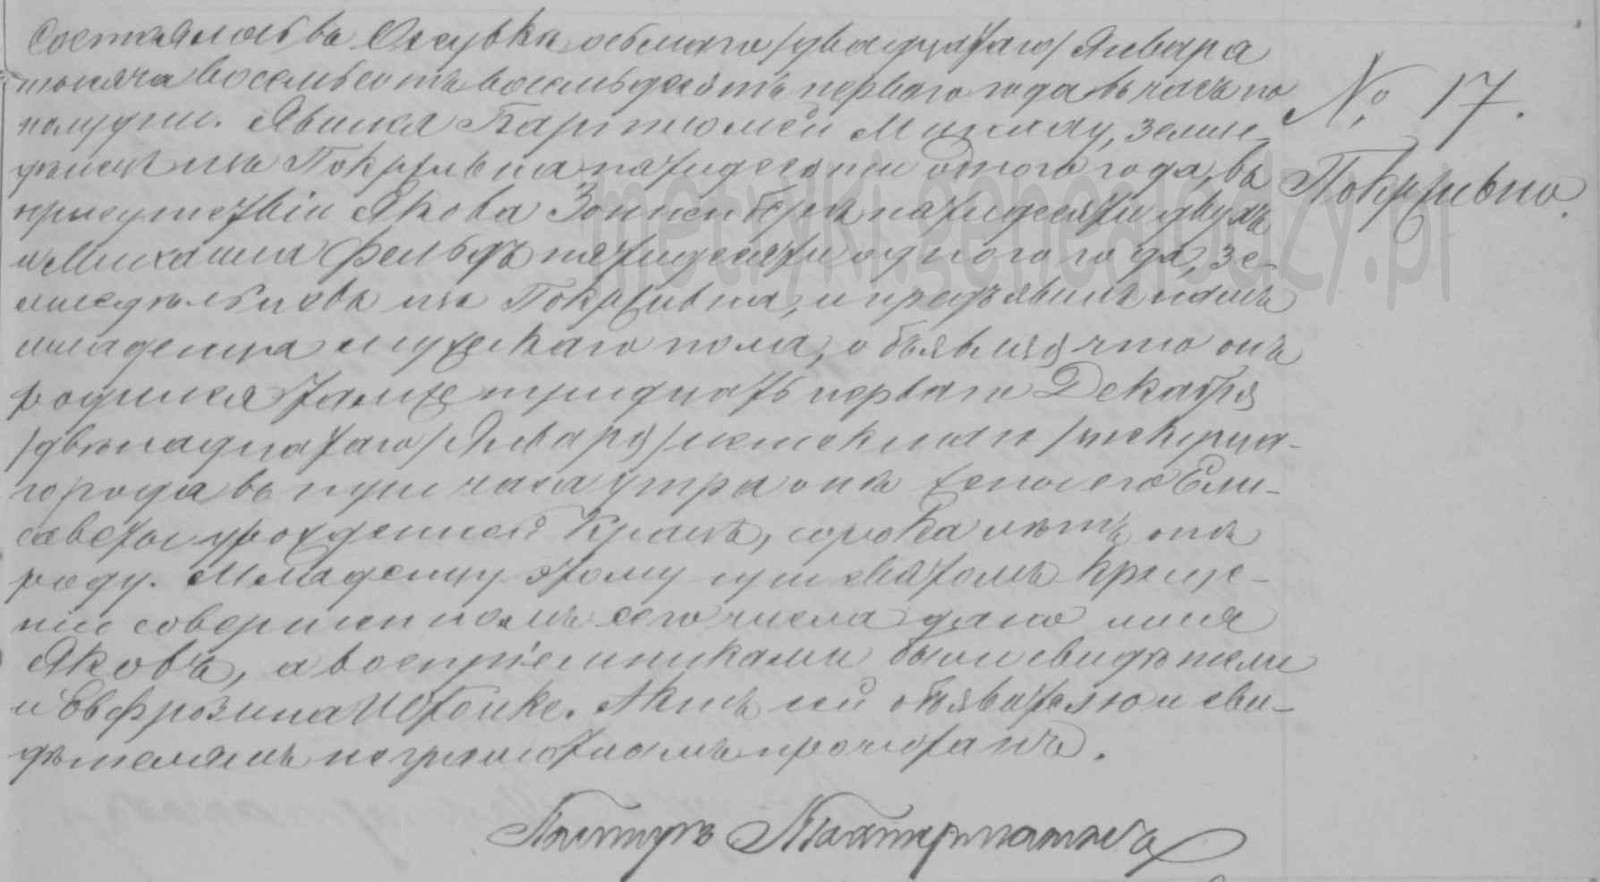 Состоялось въ Осувкѣ осьмаго /двадцатаго/ Января
тысяча восемьсотъ восемьдесятъ перваго года въ часъ по
полудни. Явился Бартломей Миклау, земле-
дѣлецъ изъ Покрывна пятидесяти одного года, въ
присутствіи Якова Зонненбергъ пятидесяти двухъ
и Михаила Фельдъ пятидесяти одного года, зе-
мледѣльцевъ изъ Покрывна, и предъявилъ намъ
младенца мужескаго пола, объявляя что онъ
родился тамже тридцать перваго Декабря
/двѣнадцатаго/ Января/ истекшаго /текуща-
го года въ три часа утра отъ жены его Ели-
саветы урожденной Кранъ, сорока лѣтъ отъ
роду. Младенцу этому при святомъ креще-
ніи совершенномъ сего числа дано имя
Яковъ, а воспріемниками были свидѣтели
и Евфрозина Штейке. Актъ сей объявителю и сви-
дѣтелямъ неграмотнымъ прочитанъ.
Пасторъ
№ 17.
Покрывно.
metryki.genealodzy.pl